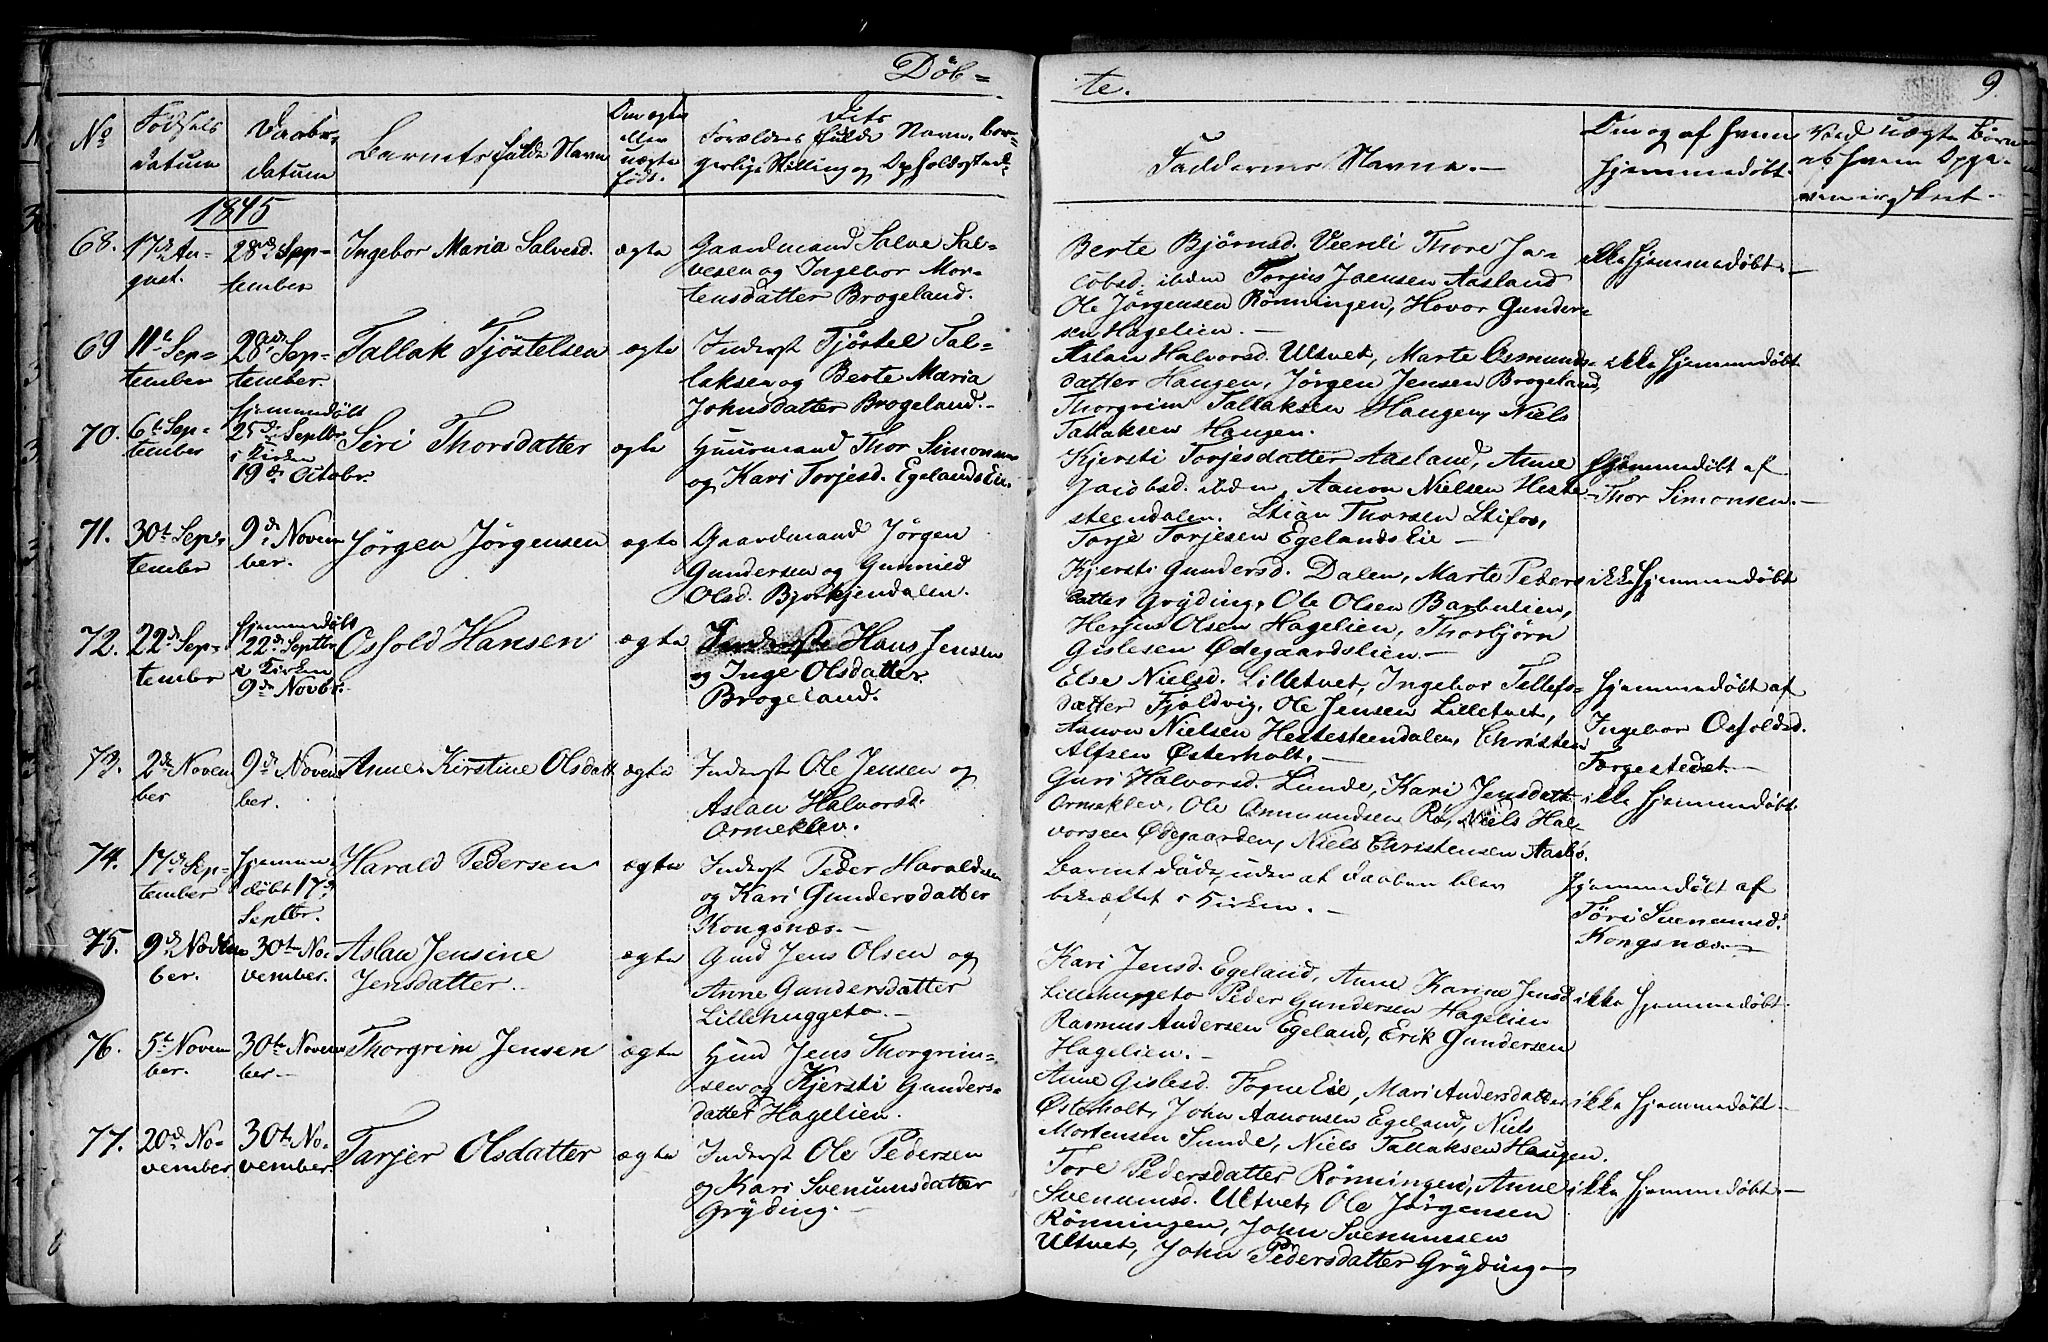 Døb-
te.
9.
No
Fødsels datum
Daabs-datum
Barnets fulde Navn
Om ægte eller uægte født.
Forældres fulde Navn, bor-
gerlige Stilling og Opholdssted.
Faddernes Navne.-
Om og af hvem
hjemmedøbt.
Ved uægte Børn
af hvem Opga-
ven er skeet.-
1845
68. 17de Au-
gust.
28de Sep-
tember
Ingebor Maria Salvesd.
ægte
Gaardmand Salve Sal-
vesen og Ingebor Mor-
tensdatter Brogeland.
Berte Bjørnsd. Veenli Thore Ja-
cobsd. ibdm Torjus Jaensen Aasland
Ole Jørgensen Rönningen, Hovor Gunder-
sen Hagelien.-
ikke hjemmedøbt.-
69 11te Sep-
tember
28de Sep-
tember.
Tallak Tjöstelsen
ægte
Inderst Tjöstel Tal-
laksen og Berte Maria
Johnsdatter Brogeland.-
Aslau Halvorsd. Ultvet, Marte Osmunds-
datter Haugen, Jørgen Jensen Brogeland,
Thorgrim Tallaksen Haugen, Niels
Tallaksen Haugen.
ikke hjemmedøbt
70. 6te Sep-
tember
hjemmedøbt
25de Septbr.
i Kirken
19de Octobr.
Siri Thorsdatter
ægte
Huusmand Thor Simonsen
og Kari Torjesd. Egelands Eie.
Kjersti Torjesdatter Aasland, Anne
Jacobsd. ibdm, Aanon Nielsen Heste-
steendalen. Stian Thorsen Stifos,
Torje Torjesen Egelands Eie -
hjemmedøbt af
Thor Simonsen.-
71. 30te Sep-
tember
9de Novem
ber.
Jørgen Jørgensen
ægte
Gaardmand Jørgen
Gundersen og Gunnild
Olsd. Bjorkjendalen.
Kjersti Gundersd. Dalen, Marte Peders
datter Gryding, Ole Olsen Barbulien,
Herjus Olsen Hagelien, Thorbjørn
Gislesen Ødegaardslien.-
ikke hjemmedøbt
72. 22de Sep-
tember
hjemmedøbt
22de Septbr
i Kirken
9de Novbr.
Osfold Hansen
ægte
Inderst Hans Jensen
og Inge Olsdatter
Brogeland.
Else Nielsd. Lilletvet, Ingebor Tellefs-
datter Fjeldvig, Ole Jensen Lilletvet,
Aanon Nielsen Hestesteendalen, Christen
Alfsen Østerholt.-
hjemmedøbt af
Ingebor Osfoldsd.
Torgestedet.-
73. 2de Novem
ber
9de Novem
ber.
Anne Kirstine Olsdatt
ægte
Inderst Ole Jensen og
Aslau Halvorsd.
Ormeklev.
Guri Halvorsd. Lunde, Kari Jensdatt
Ormeklev, Ole Ommundsen Rö, Niels Hal-
vorsen Ødegaarden, Niels Christensen Aasbö.
ikke hjemmedøbt.
74. 17de Sep-
tember
hjemme
døbt 17de
Septbr.
Harald Pedersen
ægte
Inderst Peder Haraldsen
og Kari Gundersdatter
Kongsnæs.-
Barnet døde, uden at Daaben blev
bekræftet i Kirken.-
hjemmedøbt af
Töri Svenumsd.
Kongsnæs.-
75. 9de Novem
ber.
30te No-
vember.
Aslau Jensine
Jensdatter.
ægte
Gmd Jens Olsen og
Anne Gundersdatter
Lillehuggeto.-
Kari Jensd. Egeland, Anne Karine Jensd
Lillehuggeto Peder Gundersen Hagelien
Rasmus Andersen Egeland, Erik Gundersen
Hagelien.-
ikke hjemmedøbt.
76. 5te Novem
ber.
30te Novem
ber.-
Thorgrim Jensen
ægte
Hmd Jens Thorgrim-
sen og Kjersti Gunders-
datter Hagelien.
Anne Gislesd. Fogne Eie, Mari Andersdatter
Østerholt, John Aanonsen Egeland, Niels
Mortensen Sunde, Niels Tallaksen Haugen.
ikke hjemmedøbt.-
77. 20de No-
vember
30te No-
vember.
Tarjer Olsdatter
ægte
Inderst Ole Pedersen
og Kari Svenumsdatter
Gryding.-
Tore Pedersdatter Rönningen, Anne
Svenumsd. Ultvet, Ole Jørgensen
Rönningen, John Svenumsen
Ultvet, John Pedersdatter Gryding-
ikke hjemmedøbt.-